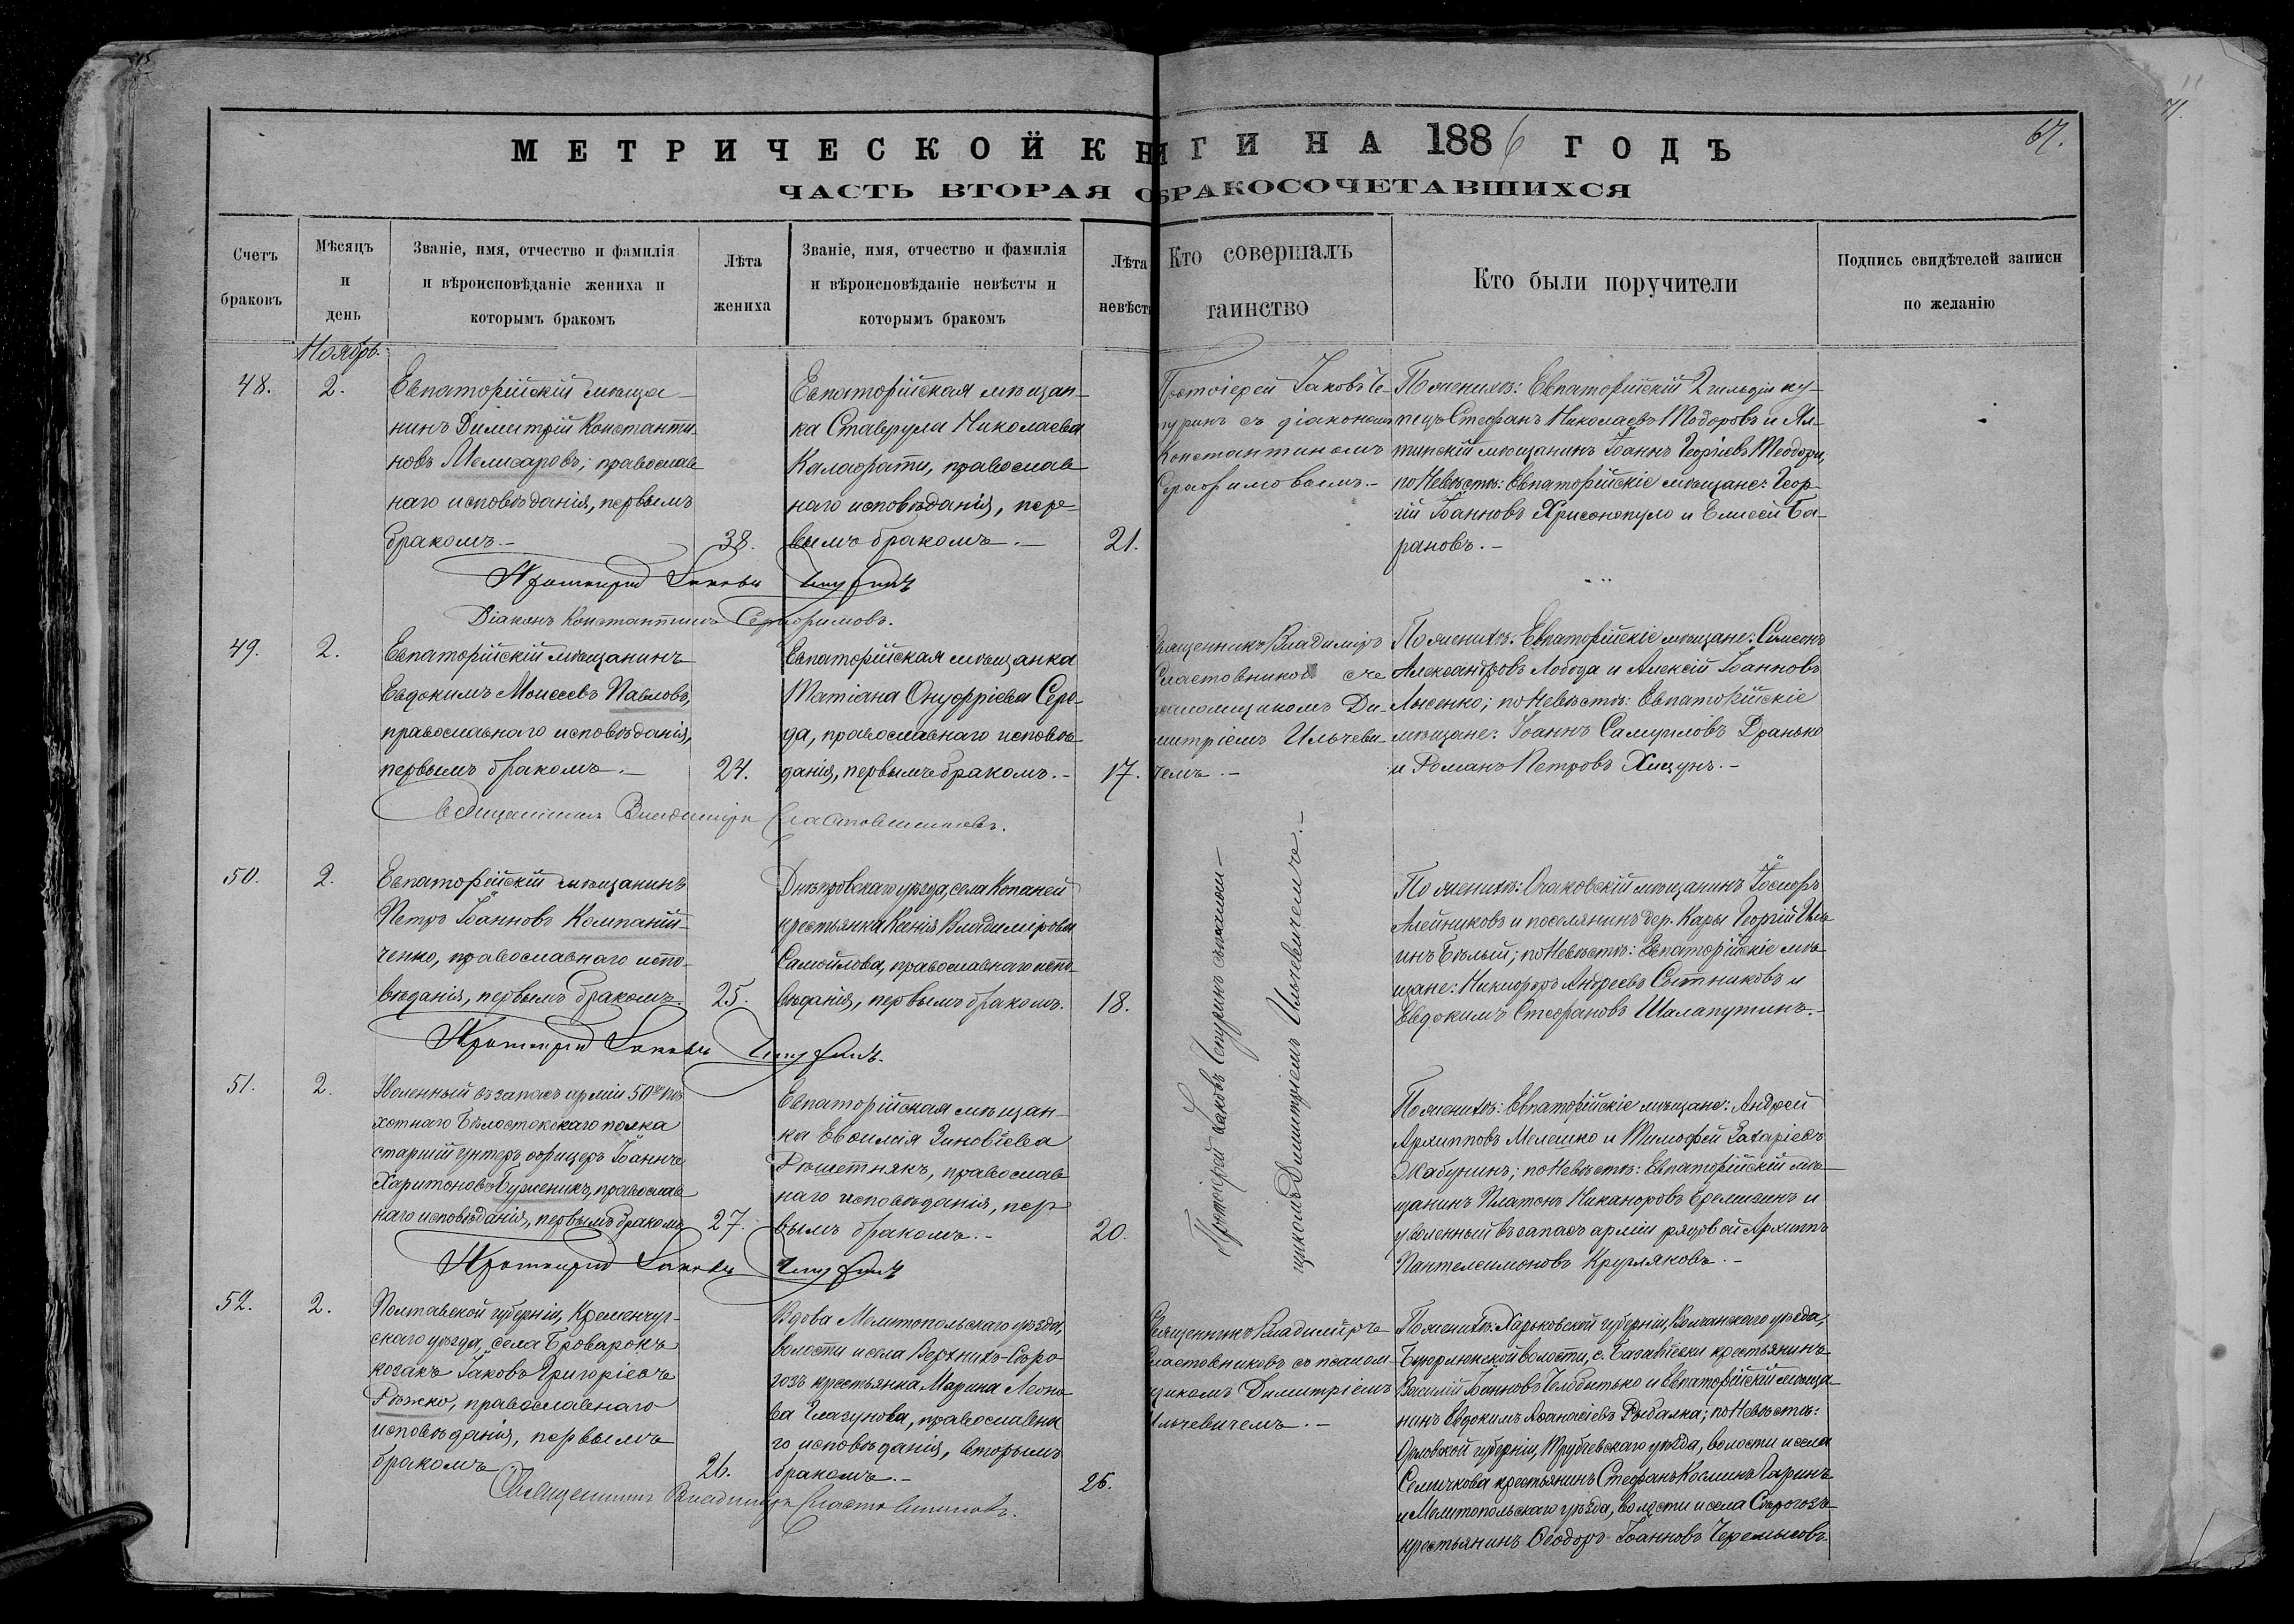 МЕТРИЧЕСКОЙ КНИГИ НА 1886 ГОДЪ
67.
71.
ЧАСТЬ ВТОРАЯ О БРАКОСОЧЕТАВШИХСЯ
Счетъ
браковъ
Мѣсяцъ
и
день
Званіе, имя, отчество и фамилія
и вѣроисповѣданіе жениха и
которымъ бракомъ
Лѣта
жениха
Званіе, имя, отчество и фамилія
и вѣроисповѣданіе невѣсты и
которымъ бракомъ
Лѣта
невѣсты
Кто совершалъ
таинство
Кто были поручители
Подпись свидѣтелей записи
по желанію
Ноябрь.
48.
2.
Евпаторійскій мѣща-
нинъ Димитрій Константи-
новъ Мелисаровъ, православ
наго исповѣданія, первымъ
бракомъ.-
38.
Евпаторійская мѣщан-
ка Ставрула Николаева
Калафати, православ
наго исповѣданія, пер-
вымъ бракомъ.-
21.
Протоіерей Іаковъ Че-
пуринъ съ діакономъ
Константиномъ
Серафимовымъ.-
По женихѣ: Евпаторійскій 2 гильдіи ку-
пецъ Стефанъ Николаевъ Тодоровъ и Ял-
тинскій мѣщанинъ Іоаннъ Георгіевъ Теодори,
по невѣстѣ: Евпаторійскіе мѣщане: Геор-
гій Іоанновъ Хрисонопуло и Елисей Ба-
рановъ.-
Протоіерей Іаковъ Чепуринъ
Діаконъ Константинъ Серафимовъ.
49.
2.
Евпаторійскій мѣщанинъ
Евдокимъ Моисеевъ Павловъ,
православнаго исповѣданія,
первымъ бракомъ.-
24.
Евпаторійская мѣщанка
Татіана Онуфріева Сере-
да, православнаго исповѣ-
данія, первымъ бракомъ.-
17.
Священникъ Владиміръ
Сластовниковъ съ
псаломщикомъ Ди-
митріемъ Ильчеви-
чемъ.-
По женихѣ: Евпаторійскіе мѣщане: Симеонъ
Александровъ Лобода и Алексій Іоанновъ
Лысенко; по невѣстѣ: Евпаторійскіе
мѣщане: Іоаннъ Самуиловъ Дранько
и Романъ Петровъ Хицунъ.-
Священникъ Владиміръ Сластовниковъ.
50.
2.
Евпаторійскій мѣщанинъ
Петръ Іоанновъ Компаній-
ченко, православнаго испо-
вѣданія, первымъ бракомъ.
25.
Днѣпровскаго уѣзда, села Копаней
крестьянка Ксенія Владимірова
Самойлова, православнаго испо-
вѣданія, первымъ бракомъ.
18.
Протоіерей Іаковъ Чепуринъ съ псалом-
щикомъ Димитріемъ Ильчевичемъ.-
По женихѣ: Очаковскій мѣщанинъ Іосифъ
Алейниковъ и поселянинъ дер. Кары Георгій Иль
инъ Бѣлый; по невѣстѣ: Евпаторійскіе мѣ-
щане: Никифоръ Андреевъ Сотниковъ и
Евдокимъ Стефановъ Шалапутинъ.-
Протоіерей Іаковъ Чепуринъ.
51.
2.
Уволенный въ запасъ арміи 50го пѣ
хотнаго Бѣлостокскаго полка
старшій унтеръ офицеръ Іоаннъ
Харитоновъ Буженикъ, православ
наго исповѣданія, первымъ бракомъ
27.
Евпаторійская мѣщан-
ка Евфимія Зиновіева
Рѣшетнякъ, православ
наго исповѣданія, пер
вымъ бракомъ.-
20.
По женихѣ: Евпаторійскіе мѣщане: Андрей
Архипповъ Мелешко и Тимофей Захаріевъ
Жабунинъ; по невѣстѣ: Евпаторійскій мѣ-
щанинъ Платонъ Никаноровъ Еремизинъ и
уволенный въ запасъ арміи рядовой Архиппъ
Пантелеимоновъ Кругляковъ.-
Протоіерей Іаковъ Чепуринъ
52.
2.
Полтавской губерніи, Кременчуг-
скаго уѣзда, села Броварокъ
козакъ Іаковъ Григоріевъ
Рѣжко, православнаго
исповѣданія, первымъ
бракомъ
26.
Вдова Мелитопольскаго уѣзда,
волости и села Верхнихъ-Сѣро
гозъ крестьянка Марина Леоно
ва Глазунова, православна
го исповѣданія, вторымъ
бракомъ.-
26.
Священникъ Владиміръ
Сластовниковъ съ псалом
щикомъ Димитріемъ
Ильчевичемъ.-
По женихѣ: Харьковской губерніи, Волчанскаго уѣзда,
волости, с. крестьянинъ
Василій Іоанновъ Челобитько и Евпаторійскій мѣща-
нинъ Евдокимъ Аѳанасіевъ Рыбалка; по невѣстѣ:
Орловской губерніи, Трубчевскаго уѣзда, волости и села
Семячкова крестьянинъ Стефанъ Косминъ Ларинъ
и Мелитопольскаго уѣзда, волости и села Сѣрогозъ
крестьянинъ Ѳеодоръ Іоанновъ Черемысовъ.
Священникъ Владиміръ Сластовниковъ.